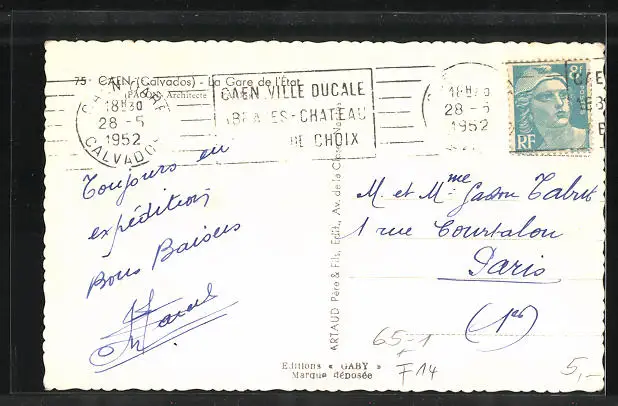 75 - CAEN (Calvados) - La Gare de l'Etat
Architecte
CAEN GARE
18H30
28-5
1952
CALVADOS
CAEN VILLE DUCALE
ABBAYES-CHATEAU
DE CHOIX
18H30
28-5
1952
8F
RF
Toujours en
expédition
Bons Baisers
M. et Mme Gaston
1 rue Courtalon
Paris
(1er)
ARTAUD Père & Fils, Edit., Av. de la
Editions « GABY »
Marque déposée
65-1
F14
5,-